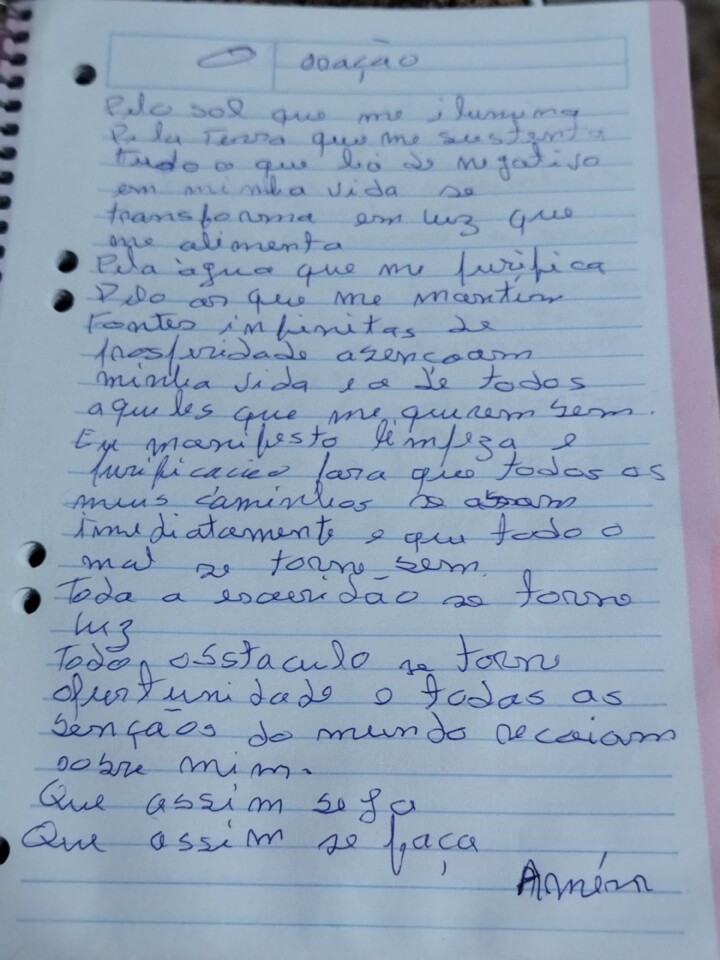 Oração
Pelo sol que me ilumina
Pela Terra que me sustenta
tudo o que há de negativo
em minha vida se
transforma em luz que
me alimenta
Pela água que me purifica
Pelo ar que me mantém
Fontes infinitas de
prosperidade abençoam
minha vida e a de todos
aqueles que me querem bem.
Eu manifesto limpeza e
purificacião para que todos os
meus caminhos se abram
imediatamente e que todo o
mal se torne bem.
Toda a escuridão se torne
luz
Todo obstaculo se torne
oportunidade e todas as
bençãos do mundo recaiam
sobre mim.
Que assim seja
Que assim se faça
Amém